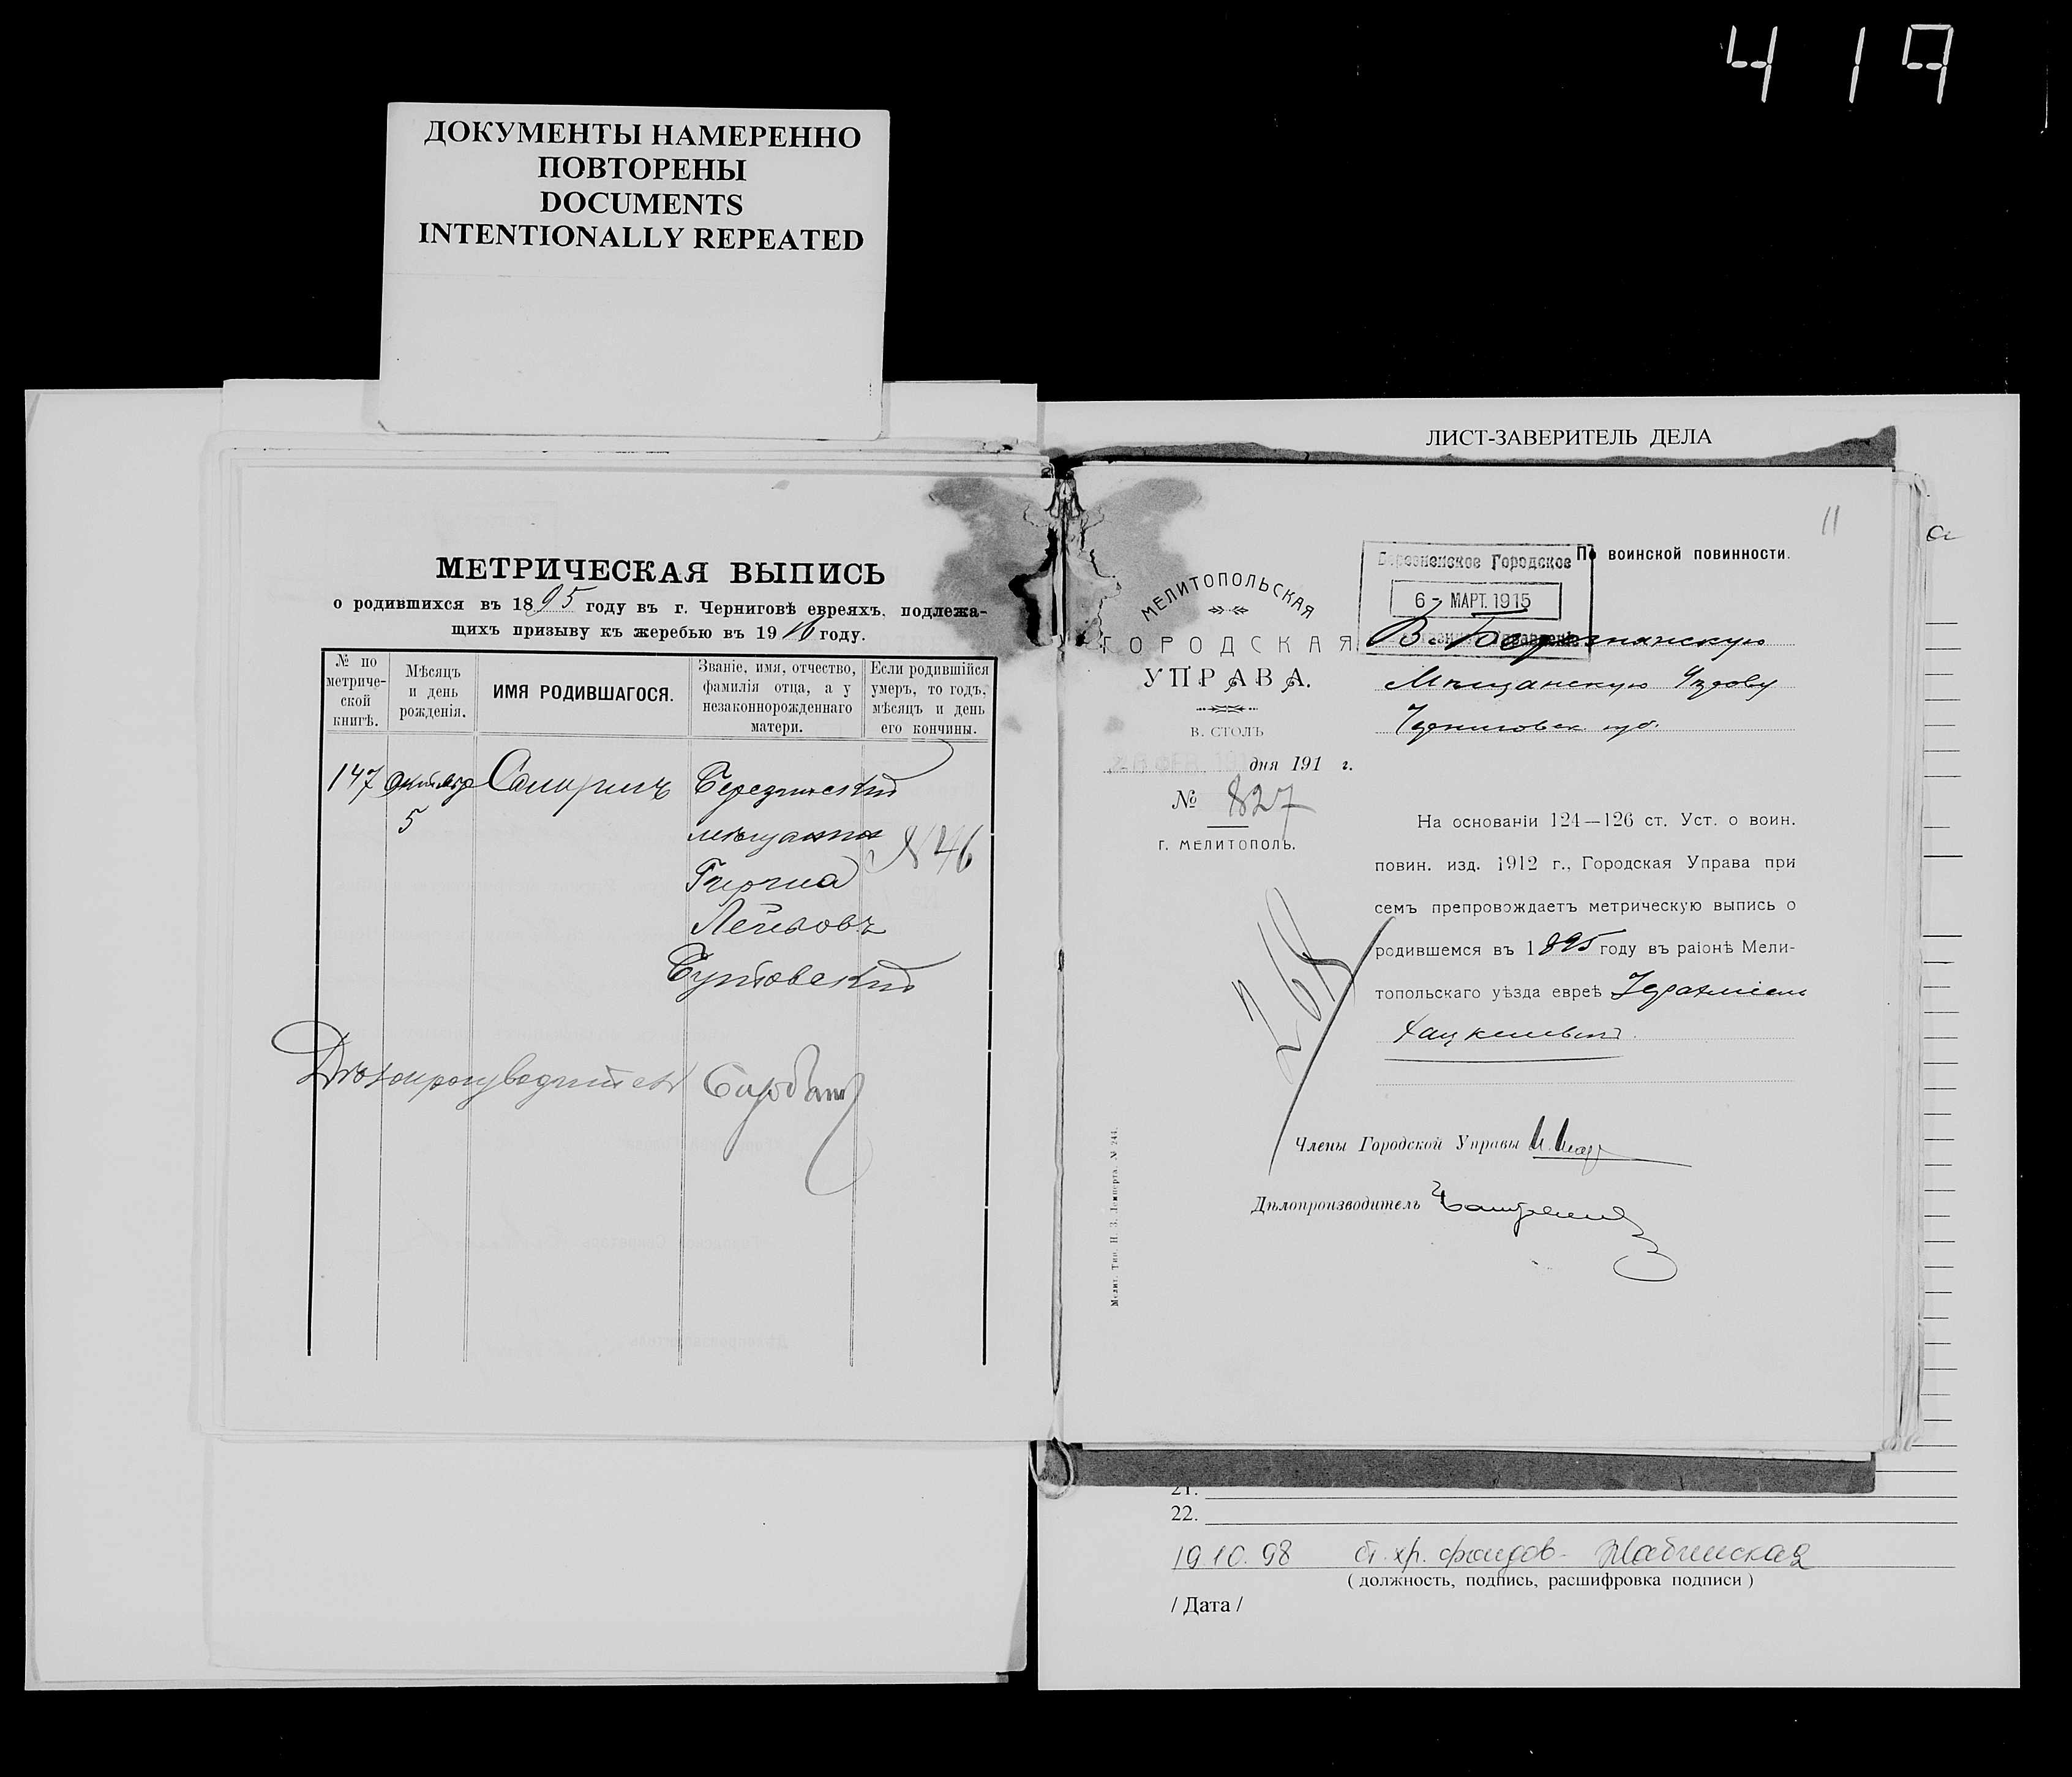 419
ДОКУМЕНТЫ НАМЕРЕННО
ПОВТОРЕНЫ
DOCUMENTS
INTENTIONALLY REPEATED
МЕТРИЧЕСКАЯ ВЫПИСЬ
о родившихся въ 1895 году въ г. Черниговѣ евреяхъ, подлежа-
щихъ призыву къ жеребью въ 1916 году.
№ по
метриче-
ской
книгѣ.
Мѣсяцъ
и день
рожденія.
ИМЯ РОДИВШАГОСЯ.
Званіе, имя, отчество,
фамилія отца, а у
незаконнорожденнаго
матери.
Если родившійся
умеръ, то годъ,
мѣсяцъ и день
его кончины.
147
Октябр
5
мѣщанин
Лейзовъ
№ 46
Дѣлопроизводитель
ЛИСТ-ЗАВЕРИТЕЛЬ ДЕЛА
11
МЕЛИТОПОЛЬСКАЯ
ГОРОДСКАЯ
УПРАВА.
В. СТОЛЪ
дня 191 г.
№ 827
г. МЕЛИТОПОЛЬ.
По воинской повинности.
Березненское Городское
6 - МАРТ. 1915
В. Березнянскую
Мѣщанскую Управу
Черниговск. губ.
На основаніи 124—126 ст. Уст. о воин.
повин. изд. 1912 г., Городская Управа при
семъ препровождаетъ метрическую выпись о
родившемся въ 1895 году въ раіонѣ Мели-
топольскаго уѣзда евреѣ Іерахміель
Хацкелевъ
Члены Городской Управы
Дѣлопроизводитель
Мелит. Тип. Н. З. Лемперта. № 244.
21.
22.
19.10.98 ст. хр. фондов
( должность, подпись, расшифровка подписи )
/ Дата /